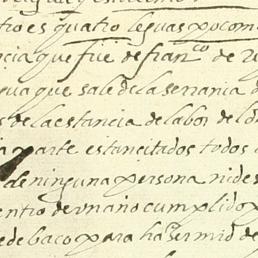 tro es quatro leguas poco m
cia que fue de fran^co de re
gua que sale de la serrania d
s de la estancia de labor de lo
parte estan citados todos
de ninguna persona ni des
entro de un año cumplido
ede baco para haser md de